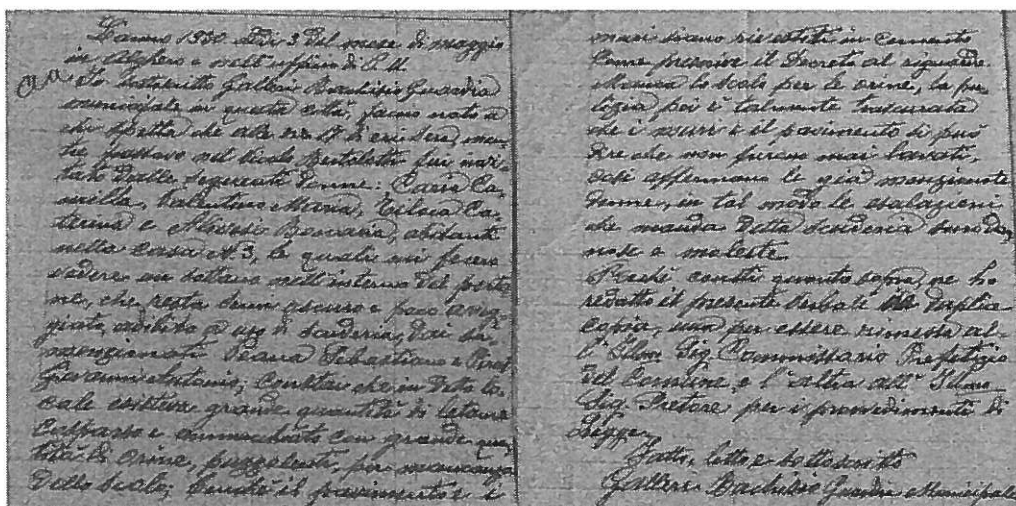 L'anno 1930 addì 3 del mese di maggio
in Alghero e nell'ufficio di P. U.
Io sottoscritto Galleri Bachisio Guardia
municipale in questa città, fanno noto a
chi spetta che alle ore di ieri sera, men-
tre passavo nel vicolo Bertolotti fui invi-
tato dalle seguenti donne: Caria Ca-
milla, Valentino Maria, Ca-
terina e Bonaria, abitanti
nella casa N. 3, le quali mi fecero
vedere un sottano nell'interno del porto-
ne, che resta scuro e poco areg-
giato, adibito a uso di scuderia, dai su-
menzionati Peana Sebastiano e
Giovanni Antonio; constatai che in detto lo-
cale esisteva grande quantità di letame
e ammucchiato con grande quan-
tità di orine, puzzolenti, per mancanza
dello scolo; benchè il pavimento e i
muri siano rivestiti in cemento
come prescrive il Decreto al riguardo.
Manca lo scolo per le orine, la pu-
lizia poi è talmente trascurata
che i muri e il pavimento si può
dire che non furono mai lavati,
così affermano le già menzionate
donne, in tal modo le esalazioni
che manda detta scuderia sono dan-
nose e moleste.
Perchè consti quanto sopra, ne ho
redatto il presente verbale in duplice
copia, una per essere rimessa al
l'Ill.mo Sig. Commissario Prefettizio
del Comune, e l'altra all'Ill.mo
Sig. Pretore per i provvedimenti di
Legge.
Fatto, letto e sottoscritto
Galleri Bachisio Guardia Municipale